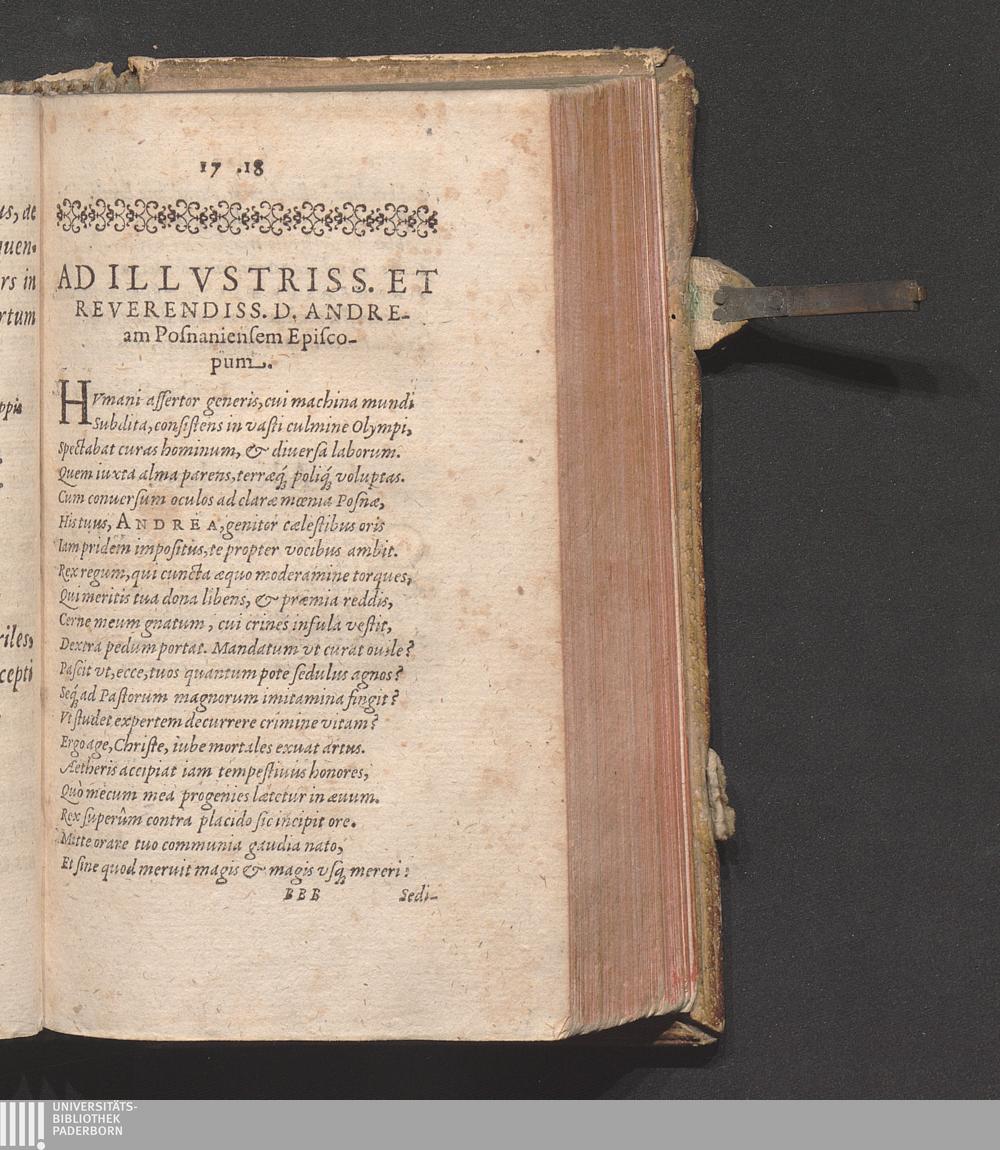 us, de
uen-
rs in
rtum
ppis
riles,
cepti
17 .18
AD ILLVSTRISS. ET
REVERENDISS. D. ANDRE-
am Poſnanienſem Epiſco-
pum.
HVmani aſſertor generis, cui machina mundi
Subdita, conſiſtens in vaſti culmine Olympi,
Spectabat curas hominum, & diuerſa laborum.
Quem iuxta alma parens, terræq́; poliq́; voluptas.
Cum conuerſum oculos ad claræ mœnia Poſnæ,
His tuus, ANDREA, genitor cæleſtibus oris
Iampridem impoſitus, te propter vocibus ambit.
Rex regum, qui cuncta æquo moderamine torques,
Qui meritis tua dona libens, & præmia reddis,
Cerne meum gnatum, cui crines inſula veſtit,
Dextra pedum portat. Mandatum vt curat ouile?
Paſcit vt, ecce, tuos quantum pote ſedulus agnos?
Seq́; ad Paſtorum magnorum imitamina fingit?
Vt ſtudet expertem decurrere crimine vitam?
Ergo age, Chriſte, iube mortales exuat artus.
Aetheris accipiat iam tempeſtiuus honores,
Quò mecum mea progenies lætetur in æuum.
Rex ſuperûm contra placido ſic incipit ore.
Mitte orare tuo communia gaudia nato,
Et ſine quod meruit magis & magis vſq; mereri:
BBB Sedi-
UNIVERSITÄTS-
BIBLIOTHEK
PADERBORN